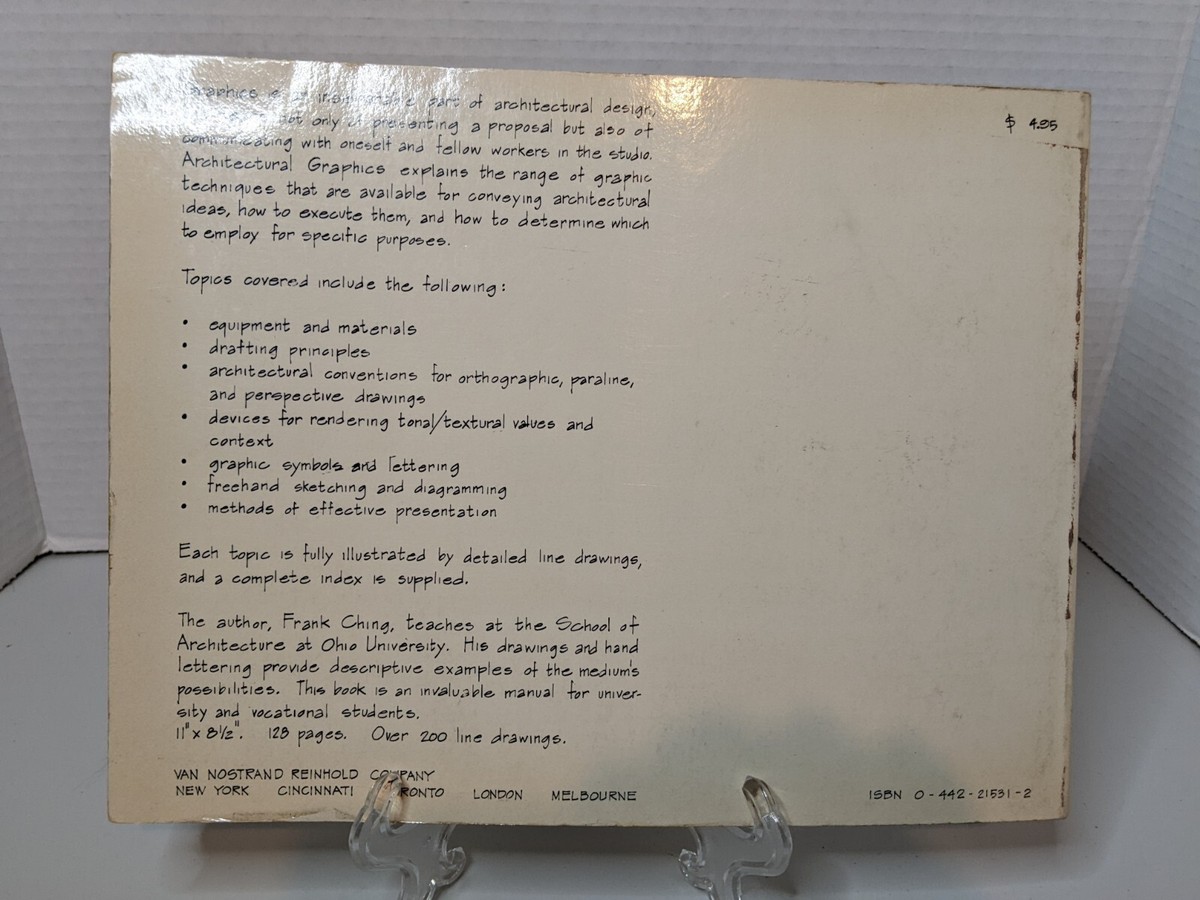 Graphics is an inseparable part of architectural design,
not only of presenting a proposal but also of
communicating with oneself and fellow workers in the studio.
Architectural Graphics explains the range of graphic
techniques that are available for conveying architectural
ideas, how to execute them, and how to determine which
to employ for specific purposes.
$ 4.95
Topics covered include the following:
• equipment and materials
• drafting principles
• architectural conventions for orthographic, paraline,
and perspective drawings
• devices for rendering tonal/textural values and
context
• graphic symbols and lettering
• freehand sketching and diagramming
• methods of effective presentation
Each topic is fully illustrated by detailed line drawings,
and a complete index is supplied.
The author, Frank Ching, teaches at the School of
Architecture at Ohio University. His drawings and hand
lettering provide descriptive examples of the medium's
possibilities. This book is an invaluable manual for univer-
sity and vocational students.
11" x 8½". 128 pages. Over 200 line drawings.
VAN NOSTRAND REINHOLD COMPANY
NEW YORK CINCINNATI TORONTO LONDON MELBOURNE
ISBN 0-442-21531-2